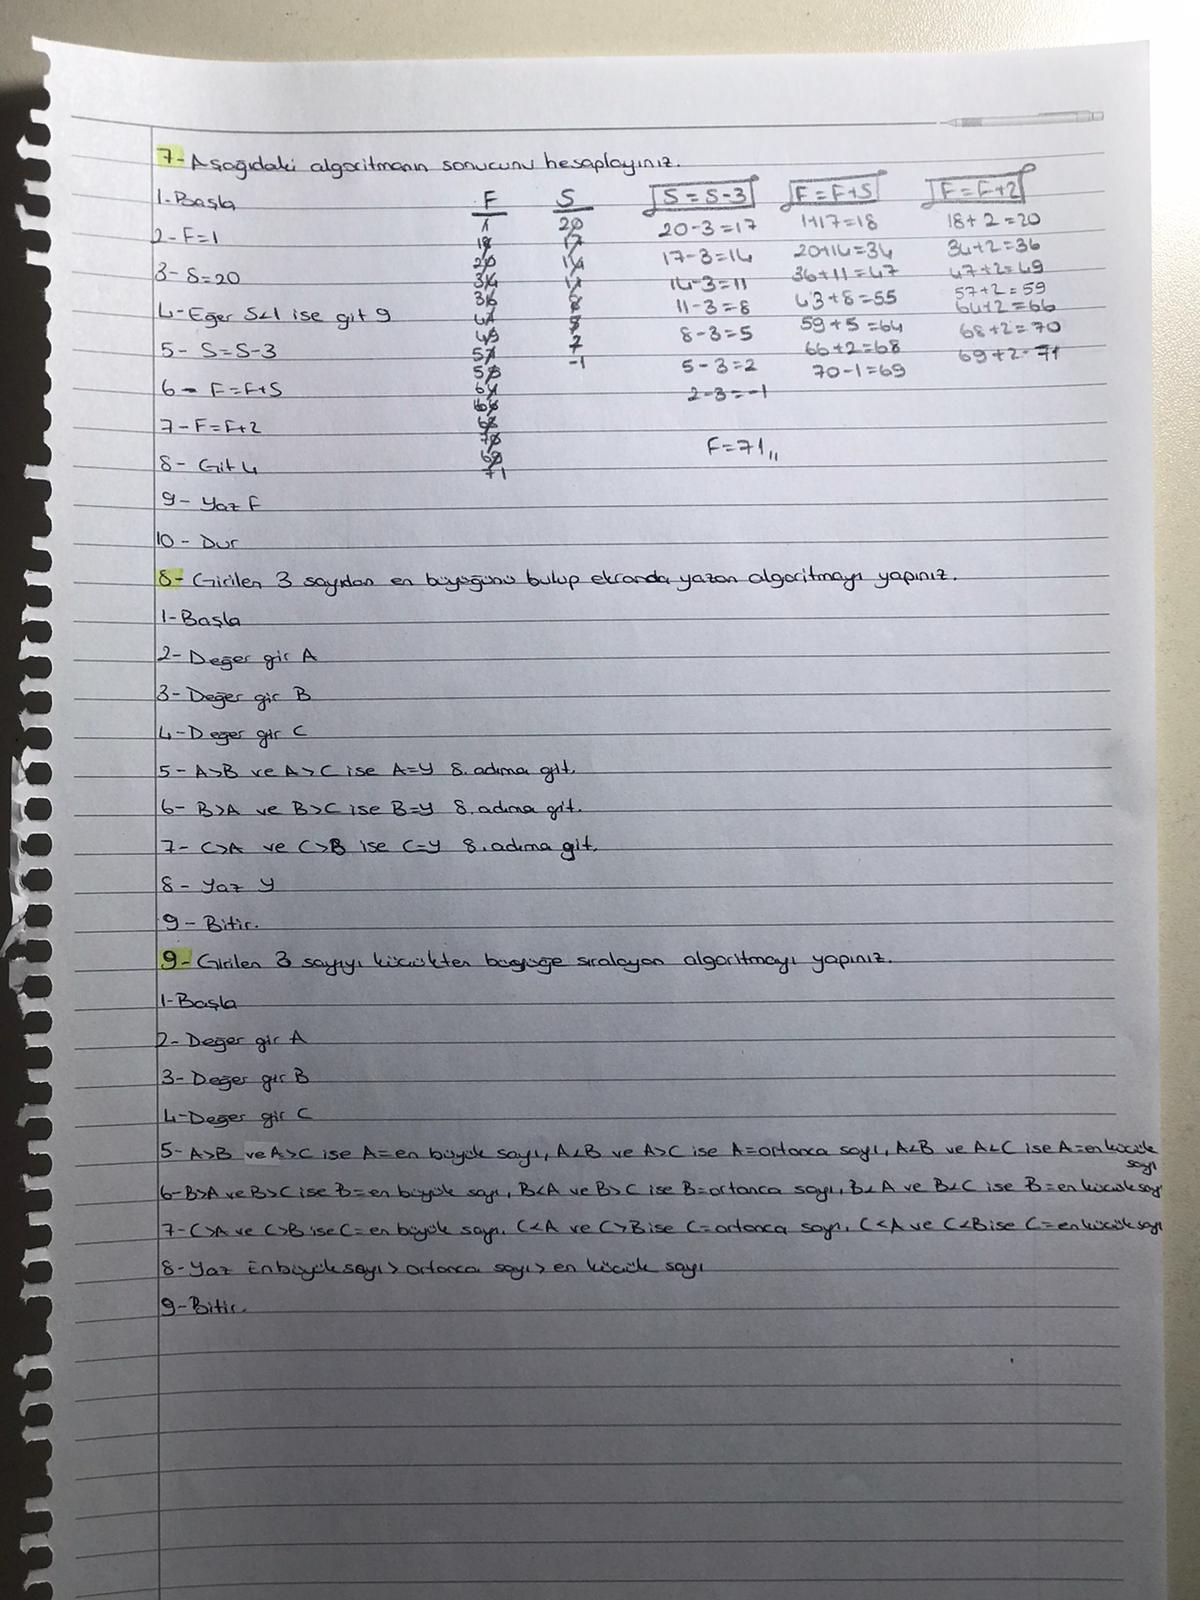 7- Aşağıdaki algoritmanın sonucunu hesaplayınız.
1-Başla
2- F=1
3- S=20
4-Eğer S<1 ise git 9
5- S=S-3
6- F=F+S
7- F=F+2
8- Git 4
9- Yaz F
10- Dur
F
1
18
20
34
36
47
49
57
64
66
68
70
69
71
S
20
17
14
11
8
5
2
-1
S = S-3
20-3=17
17-3=14
14-3=11
11-3=8
8-3=5
5-3=2
2-3=-1
F=F+S
1+17=18
20+14=34
36+11=47
59+5=64
66+2=68
70-1=69
F=F+2
18+2=20
34+2=36
47+2=49
57+2=59
64+2=66
68+2=70
69+2=71
F=71
8- Girilen 3 sayıdan en büyüğünü bulup ekranda yazan algoritmayı yapınız.
1-Başla
2- Değer gir A
3- Değer gir B
4-Değer gir C
5- A>B ve A>C ise A=Y 8. adıma git.
6- B>A ve B>C ise B=Y 8. adıma git.
7- C>A ve C>B ise C=Y 8. adıma git.
8- Yaz Y
9- Bitir.
9- Girilen 3 sayıyı küçükten büyüğe sıralayan algoritmayı yapınız.
1-Başla
2- Değer gir A
3- Değer gir B
4-Değer gir C
5- A>B ve A>C ise A=en büyük sayı, A<B ve A>C ise A=ortanca sayı, A<B ve A<C ise A=en küçük
sayı
6-B>A ve B>C ise B=en büyük sayı, B<A ve B>C ise B=ortanca sayı, B<A ve B<C ise B=en küçük sayı
7-C>A ve C>B ise C=en büyük sayı, C<A ve C>B ise C=ortanca sayı, C<A ve C<B ise C=en küçük sayı
8-Yaz En büyük sayı> ortanca sayı> en küçük sayı
9-Bitir.